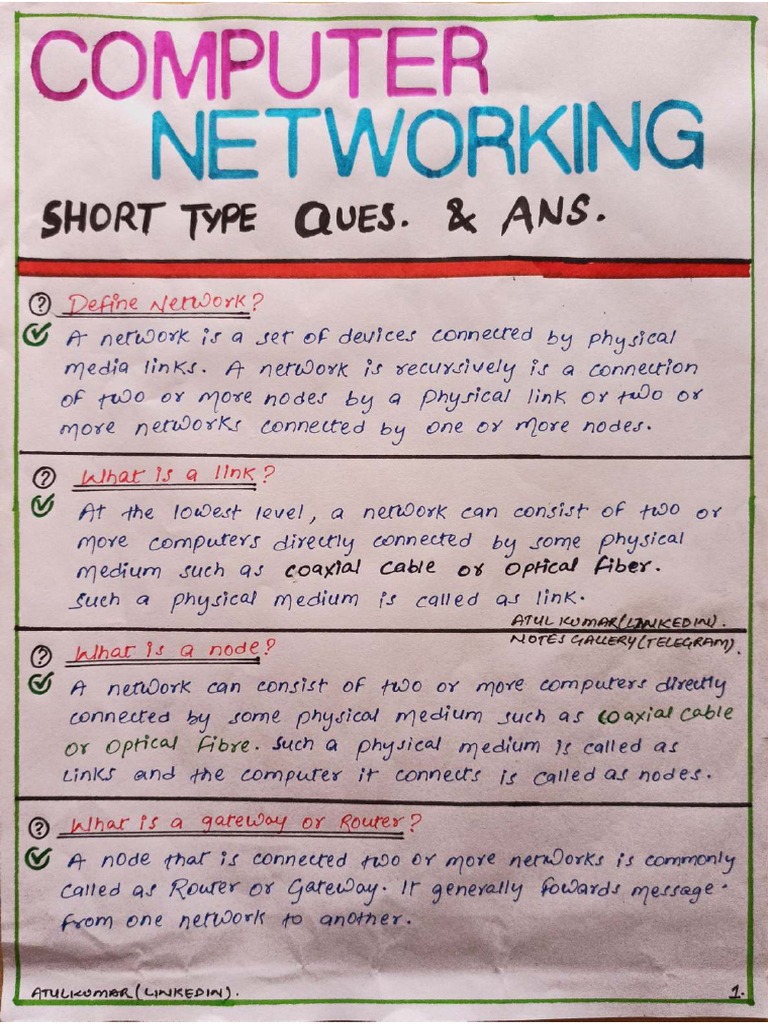 COMPUTER
NETWORKING
SHORT TYPE QUES. & ANS.
? Define Network?
A network is a set of devices connected by physical
media links. A network is recursively is a connection
of two or more nodes by a physical link or two or
more networks connected by one or more nodes.
? What is a link?
At the lowest level, a network can consist of two or
more computers directly connected by some physical
medium such as coaxial cable or optical fiber.
Such a physical medium is called as link.
ATUL KUMAR(LINKEDIN).
NOTES GALLERY(TELEGRAM).
? What is a node?
A network can consist of two or more computers directly
connected by some physical medium such as coaxial cable
or optical fibre. Such a physical medium is called as
Links and the computer it connects is called as nodes.
? What is a gateway or Router?
A node that is connected two or more networks is commonly
called as Router or Gateway. It generally fowards message.
from one network to another.
ATULKUMAR(LINKEDIN).
1.